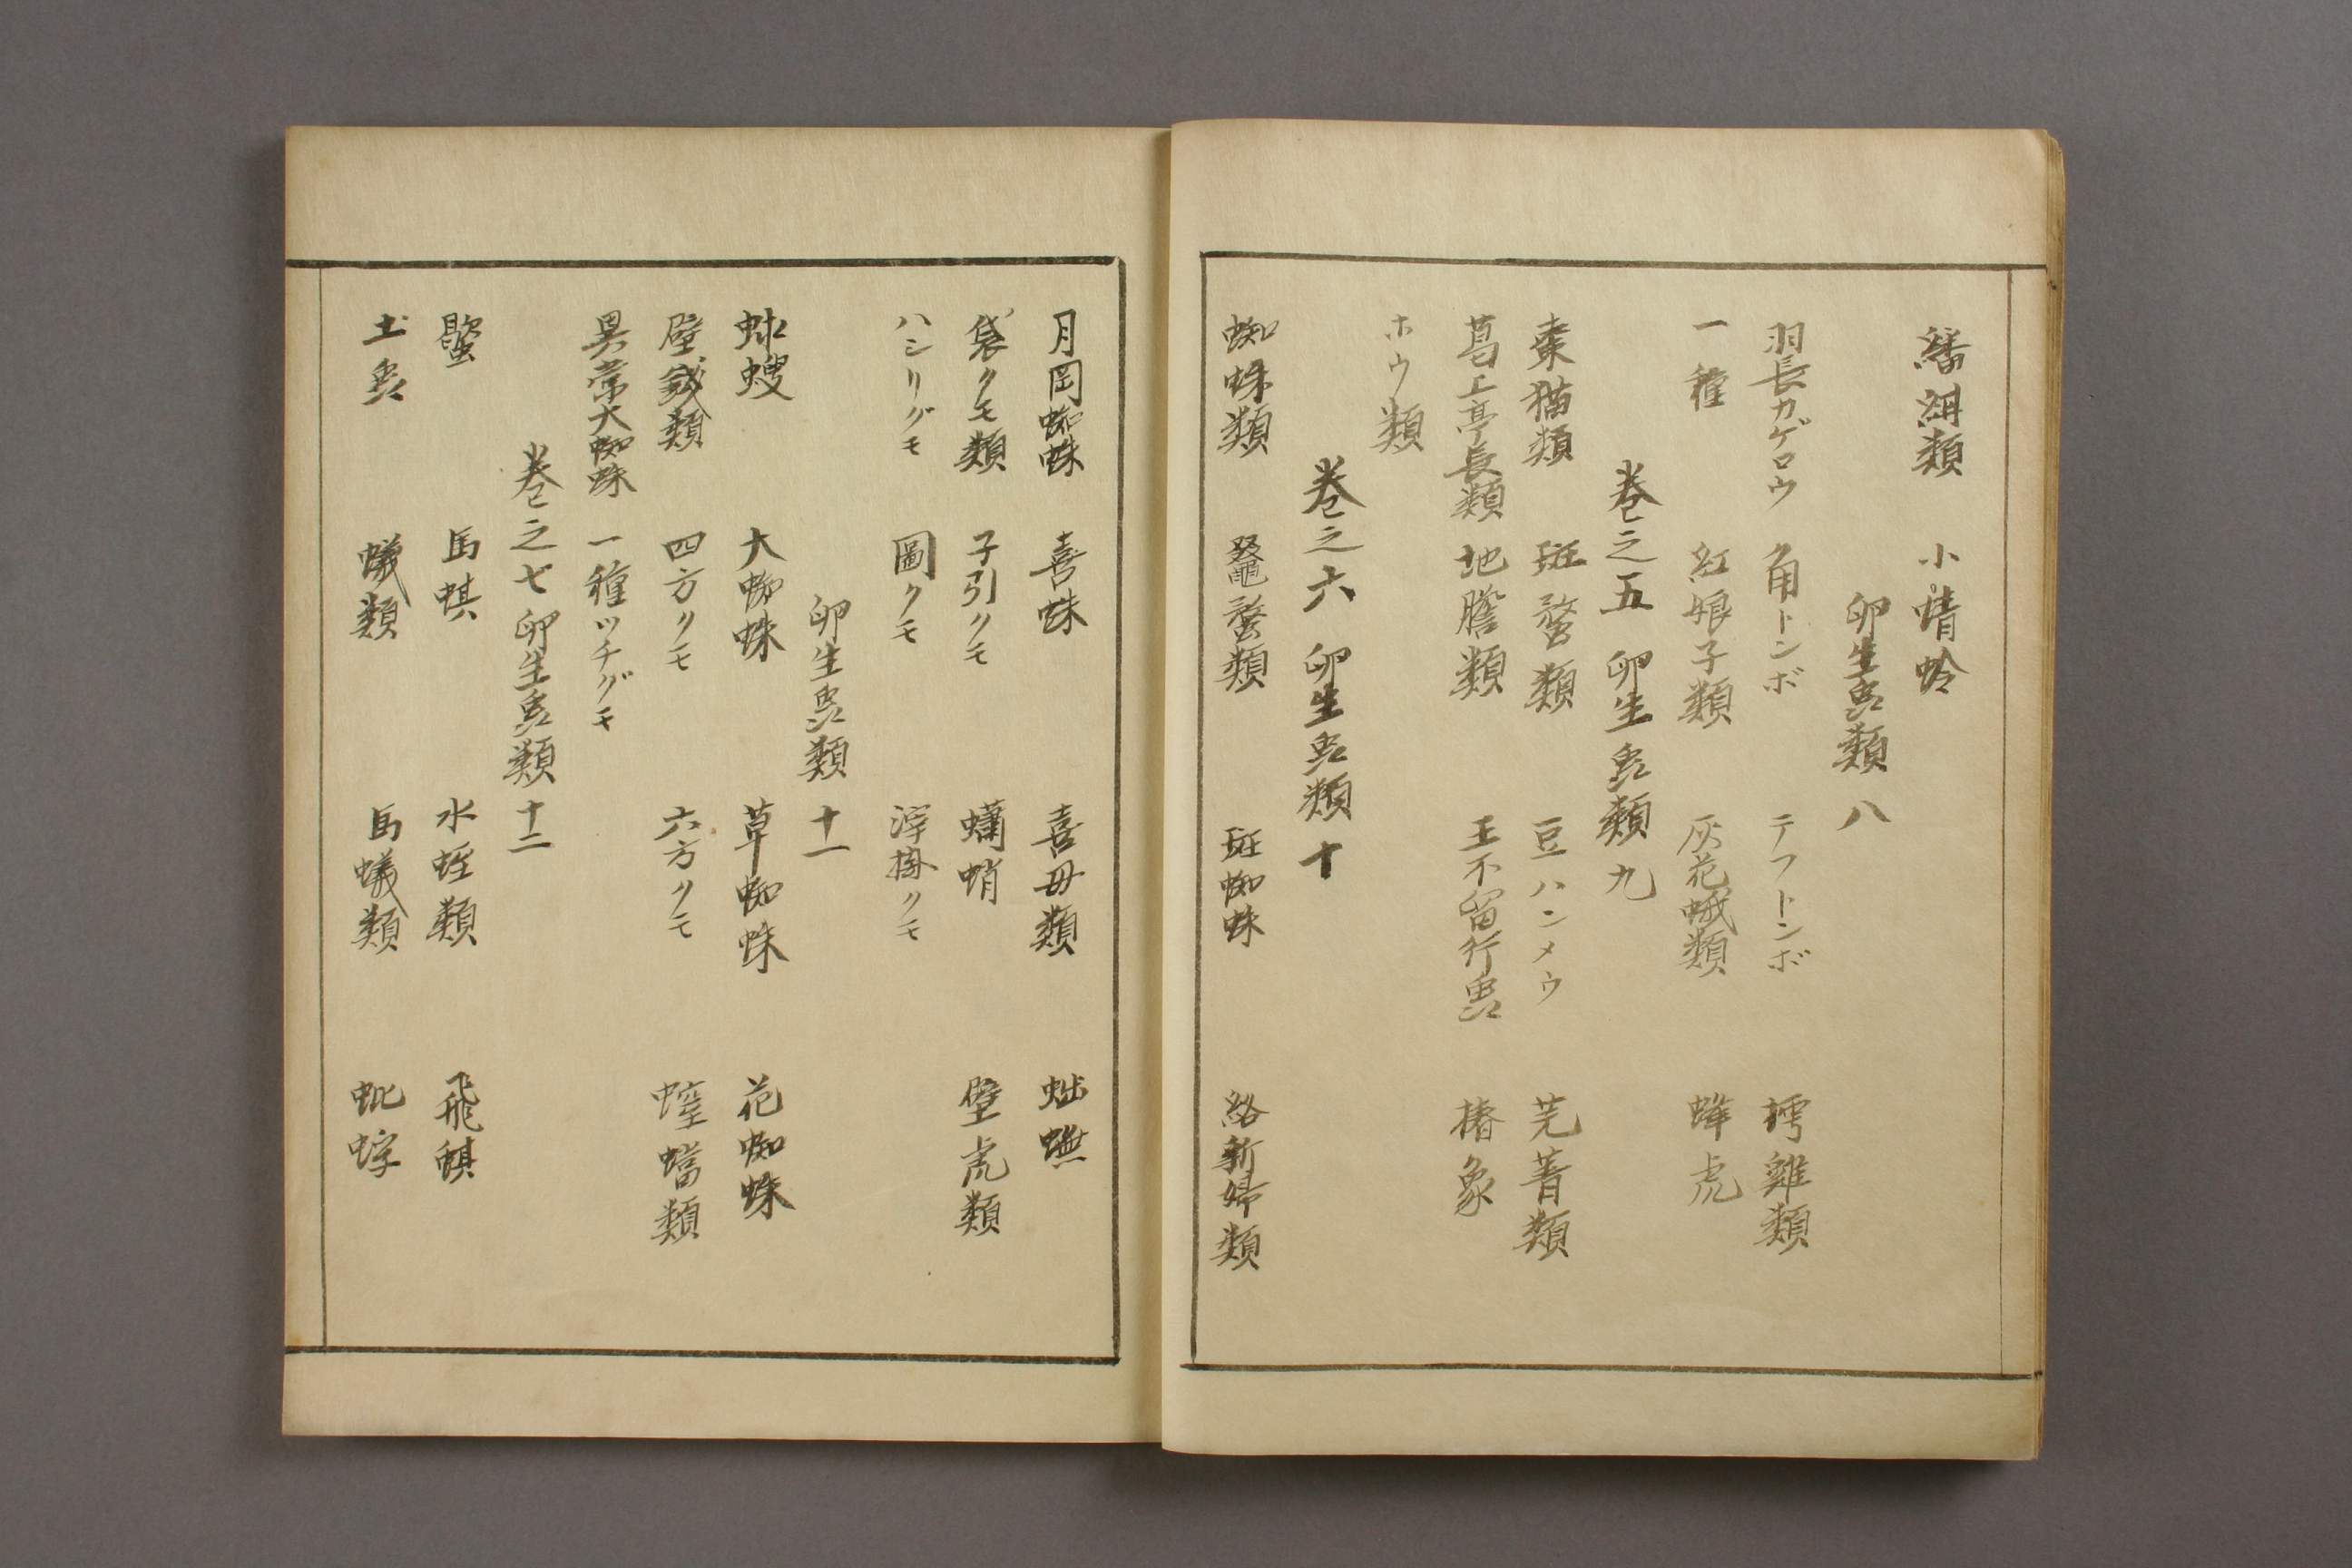 繙䋚類 小蜻蛉
卵生䖝類 八
羽長カゲロウ 角トンボ テフトンボ 樗雞類
一種 紅娘子類 灰花蛾類 蜂虎
卷之五 卵生䖝類 九
棗猫類 斑蝥類 豆ハンメウ 芫菁類
葛上亭長類 地膽類 王不留行䖝 椿象
ホウ類
卷之六 卵生䖝類 十
蜘蛛類 鼅蝥類 斑蜘蛛 絡新婦類
月岡蜘蛛 喜蛛 喜母類 蚍蟱
袋クモ類 子引クモ 蠨蛸 壁虎類
ハシリグモ 圖クモ 滓掛クモ
卵生䖝類 十一
蛷螋 大蜘蛛 草蜘蛛 花蜘蛛
壁錢類 四方クモ 六方クモ 螲蟷類
異常大蜘蛛 一種ツチグモ
卷之七 卵生䖝類 十二
馬蜞 水蛭類 飛蜞
土䖝 蟻類 馬蟻類 蚍蜉